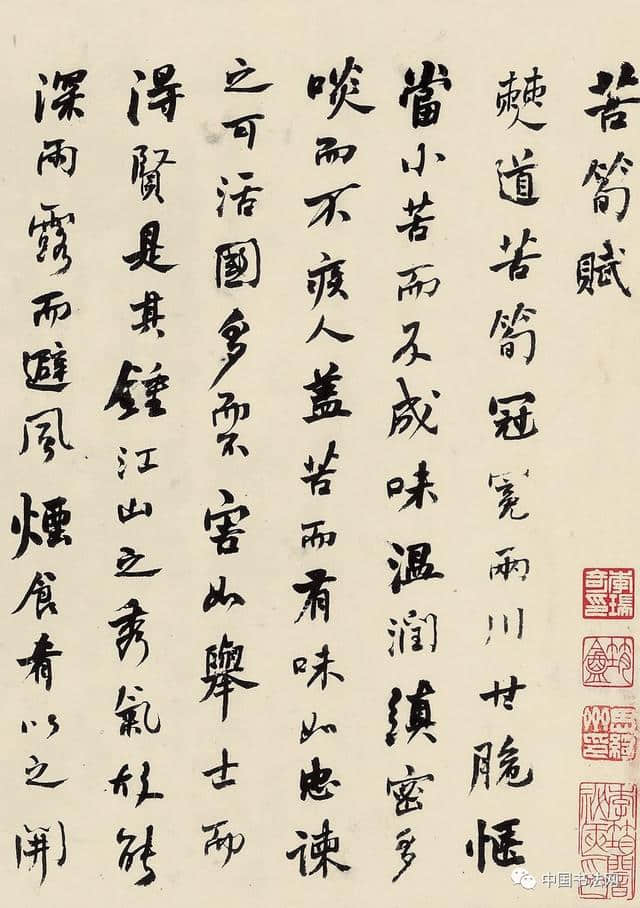 苦筍賦
僰道苦筍冠冕兩川甘脆愜
當小苦而反成味温潤縝密多
啖而不疾人蓋苦而有味如忠諫
之可活國多而不害如舉士而
得賢是其鍾江山之秀氣故能
深雨露而避風煙食肴以之開
中国书法网